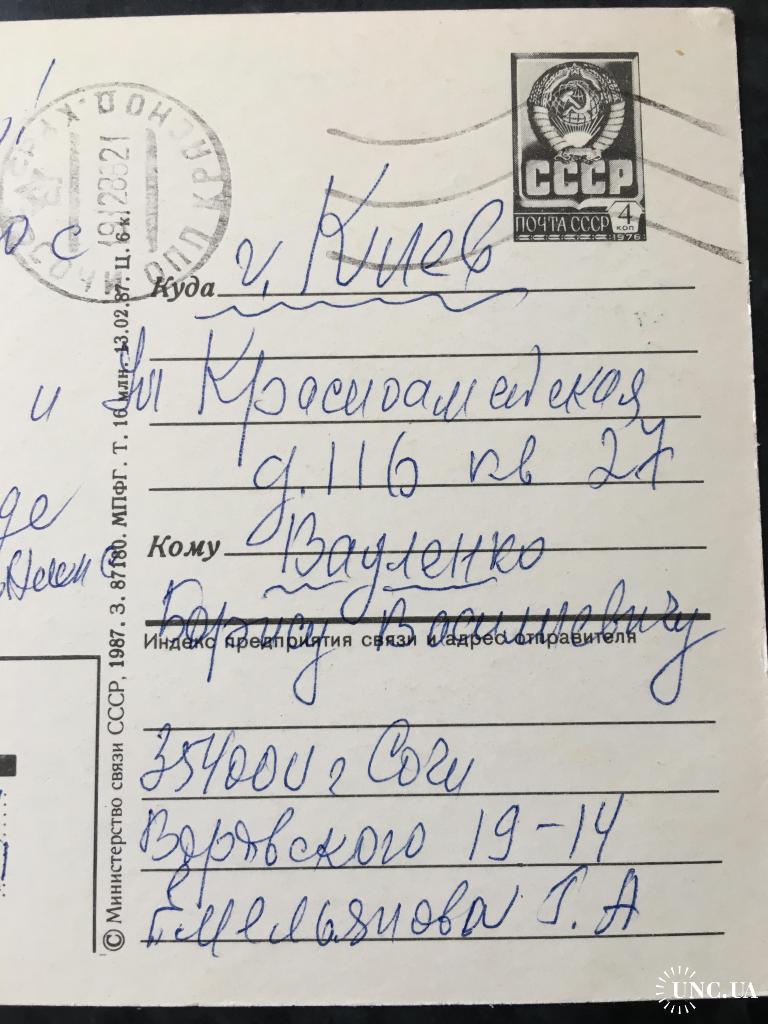 СССР
ПОЧТА СССР 4 КОП
1976
ППО КРАСНОД
Куда г. Киев
Красноармейская
д. 116 кв 27
Кому Вауленко
Борису Васильевичу
Индекс предприятия связи и адрес отправителя
354000 г Сочи
Воровского 19-14
Емельянова Г. А
© Министерство связи СССР, 1987. З. 87180. МПФГ. Т. 16 млн. 13.02.87. Ц. 6 к.
ос
и
де
UNC.UA